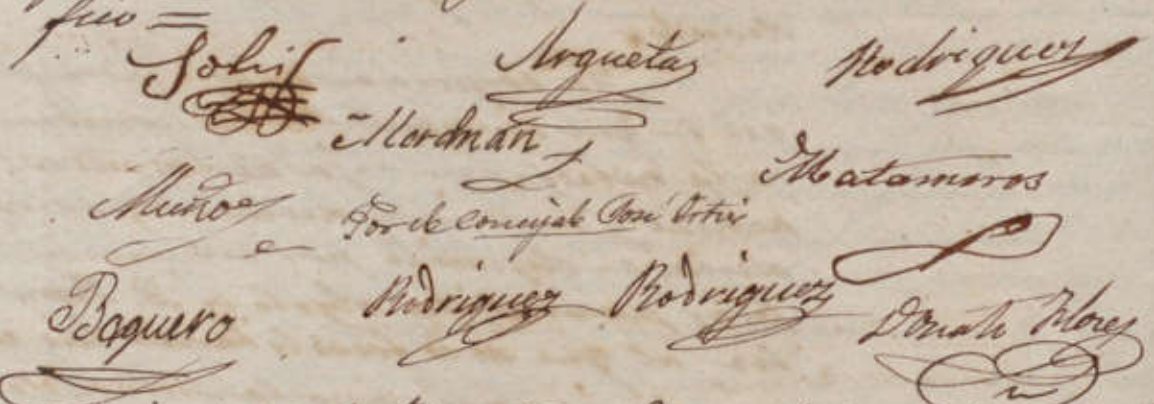 Solis Argueta Rodriguez
Merdnan
Muñoz Matamoros
Por el Concejal José Ortiz
Baquero Rodriguez Rodriguez Donato Flores